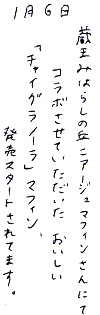 1月6日
蔵王みはらしの丘ニアージュマフィンさんにて
コラボさせていただいた おいしい
「チャイグラノーラ」マフィン、
発売スタートされてます。